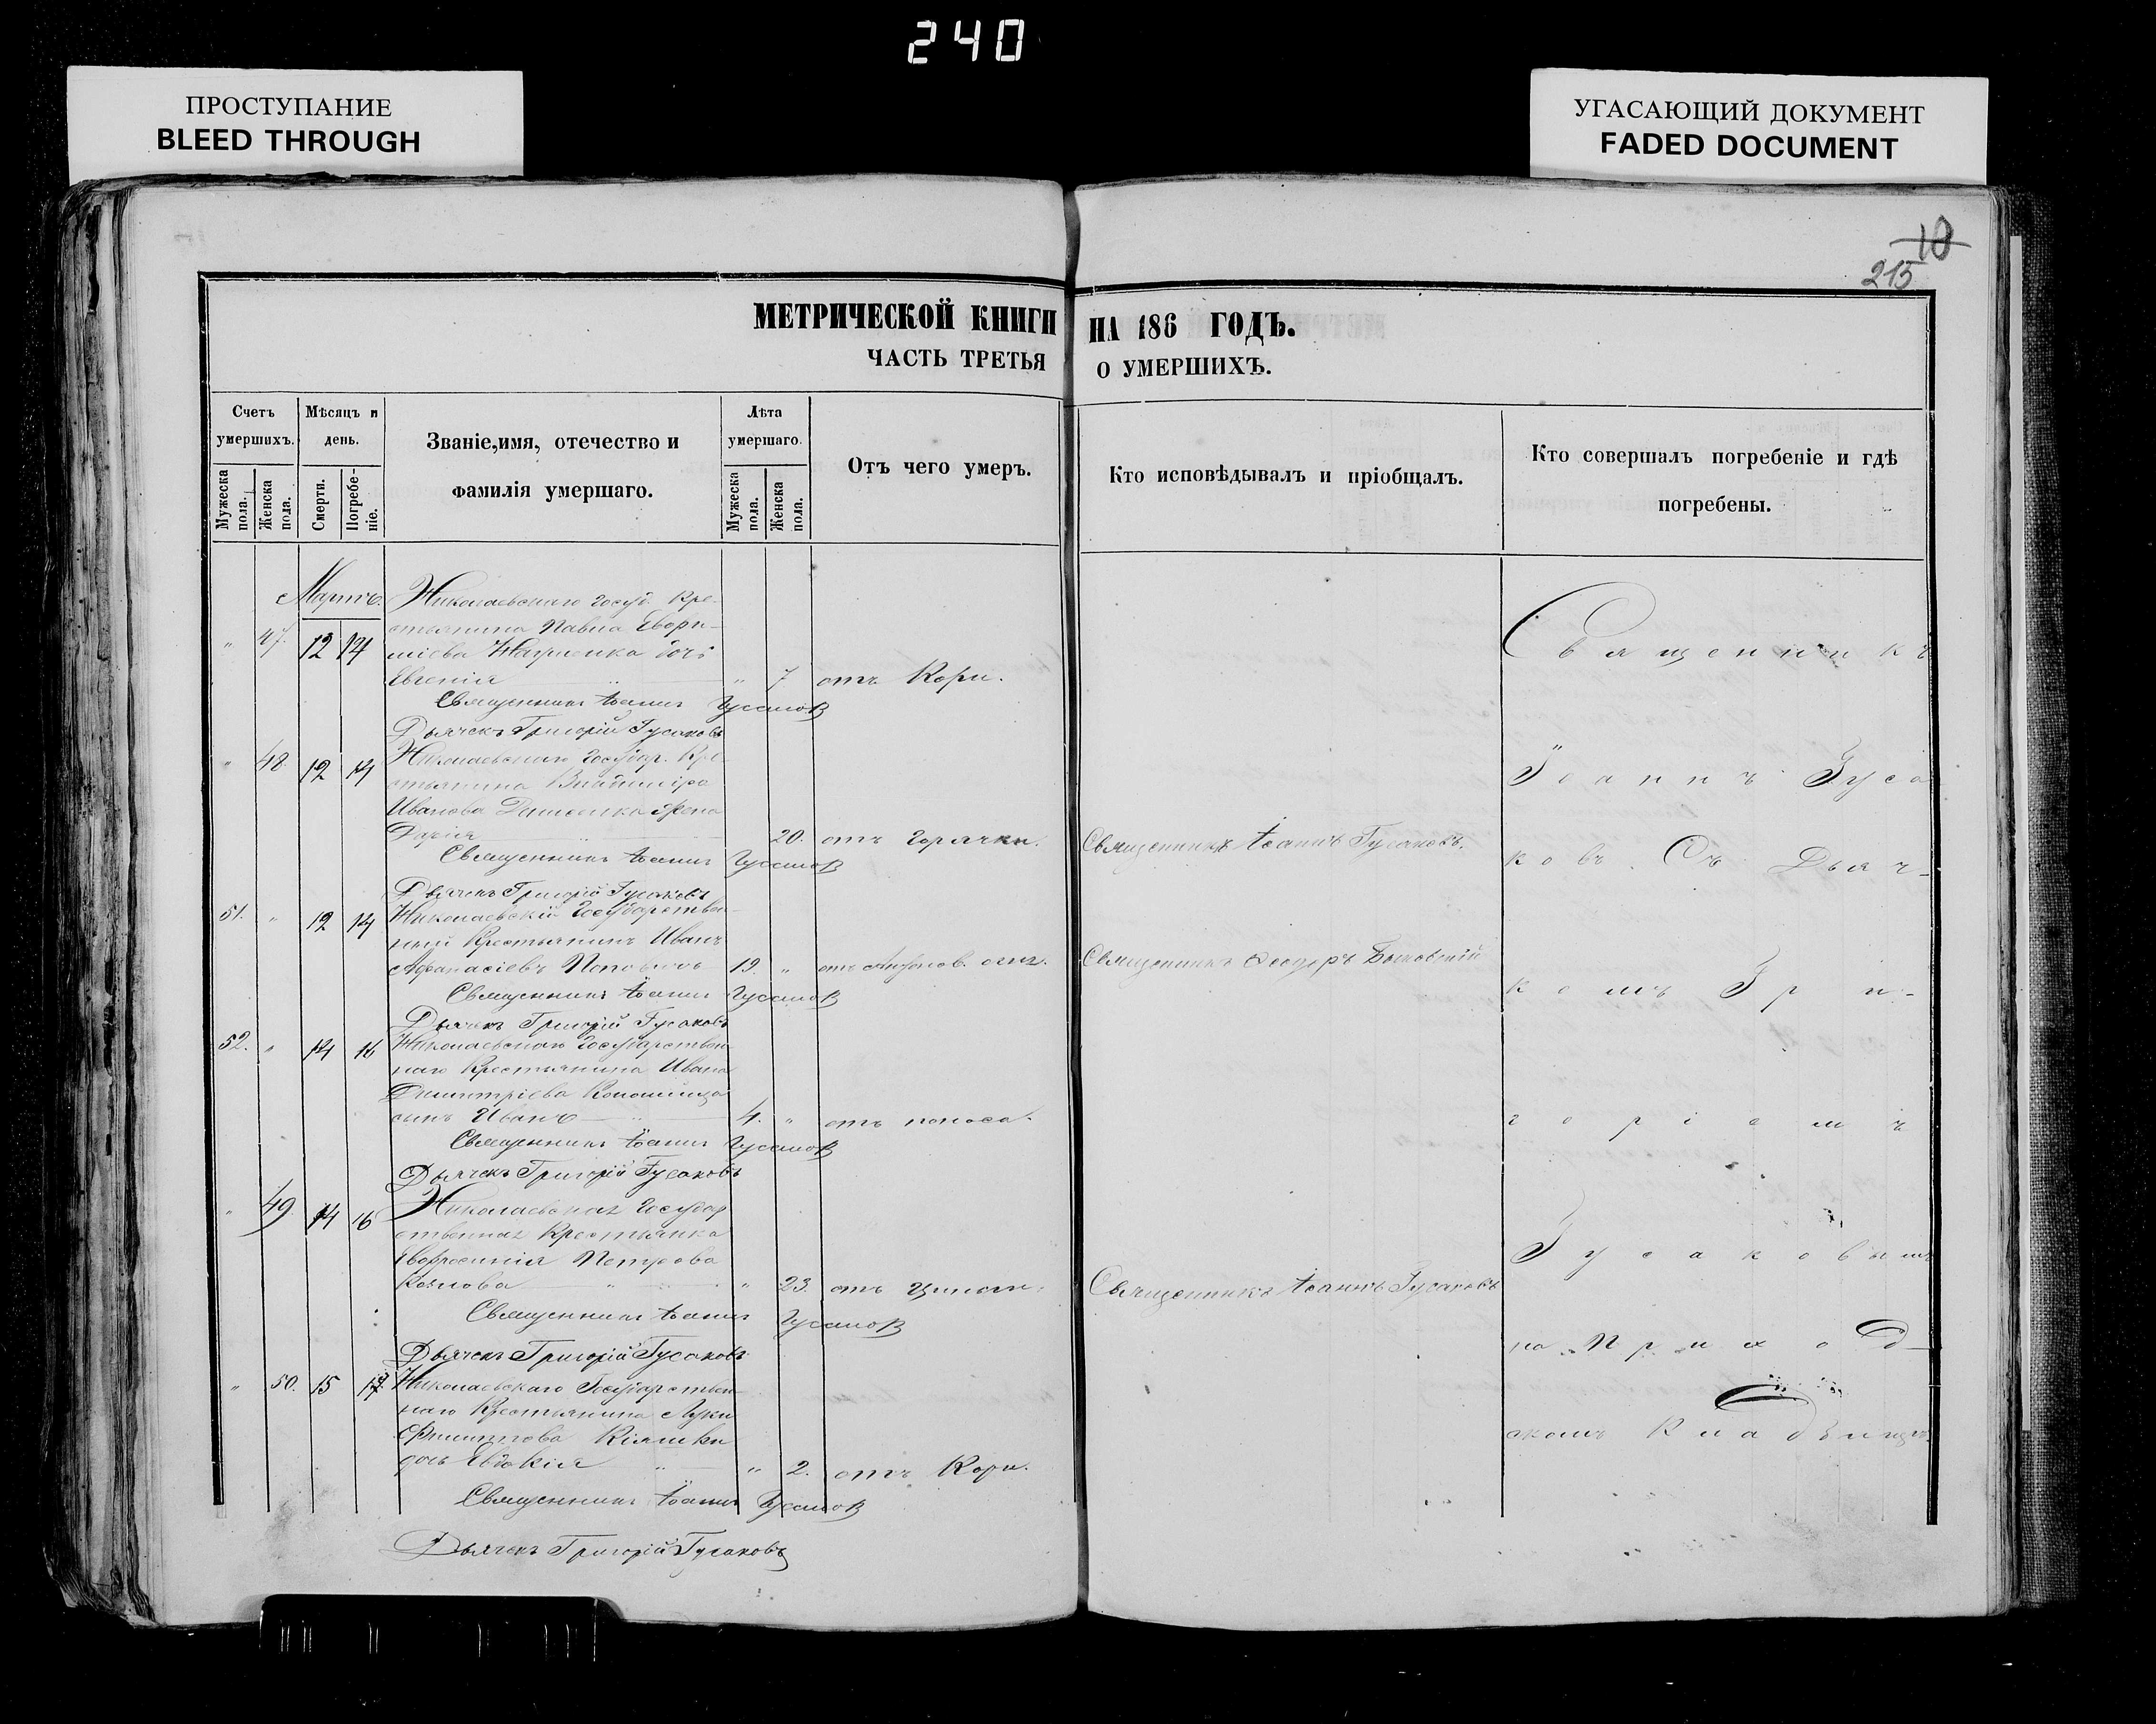 240
ПРОСТУПАНИЕ
BLEED THROUGH
УГАСАЮЩИЙ ДОКУМЕНТ
FADED DOCUMENT
10
215
МЕТРИЧЕСКОЙ КНИГИ НА 186 ГОДЪ.
ЧАСТЬ ТРЕТЬЯ О УМЕРШИХЪ.
Счетъ умершихъ.
Мѣсяцъ и день.
Званіе, имя, отечество и фамилія умершаго.
Лѣта умершаго.
Отъ чего умеръ.
Кто исповѣдывалъ и пріобщалъ.
Кто совершалъ погребеніе и гдѣ погребены.
Мужеска пола.
Женска пола.
Смерти.
Погребеніе.
Мужеска пола.
Женска пола.
Мартъ. Николаевскаго Госуд. Кре-
стьянина Павла
" 47. 12 14 дочь
Евгенія " 7 отъ Кори.
Священникъ Іоаннъ Гусаковъ
Дьячекъ Григорій Гусаковъ
" 48. 12 14 Николаевскаго Государ. Кре-
стьянина Владиміра
Иванова жена
Дарія 20. отъ Горячки. Священникъ Іоаннъ Гусаковъ.
Священникъ Іоаннъ Гусаковъ
Дьячекъ Григорій Гусаковъ
51. " 12 14 Николаевскій Государствен-
ный Крестьянинъ Иванъ
Афанасіевъ 19. " отъ Антонов. огня. Священникъ Феодоръ
Священникъ Іоаннъ Гусаковъ
Дьячекъ Григорій Гусаковъ
52. " 14 16 Николаевскаго Государствен-
наго Крестьянина Ивана
Димитріева
сынъ Иванъ 4. " отъ поноса.
Священникъ Іоаннъ Гусаковъ
Дьячекъ Григорій Гусаковъ
" 49 14 16 Николаевская Государ
ственная Крестьянка
Евфросинія Петрова
Козлова " 23. отъ Священникъ Іоаннъ Гусаковъ
Священникъ Іоаннъ Гусаковъ
Дьячекъ Григорій Гусаковъ
" 50. 15 17 Николаевскаго Государствен-
наго Крестьянина Луки
Филиппова
дочь Евдокія " 2. отъ Кори.
Священникъ Іоаннъ Гусаковъ
Дьячекъ Григорій Гусаковъ
Священникъ
Іоаннъ Гуса
ковъ. Съ Дьяч-
комъ Гри-
горіемъ
Гусаковымъ
на Приход-
скомъ Кладбищѣ